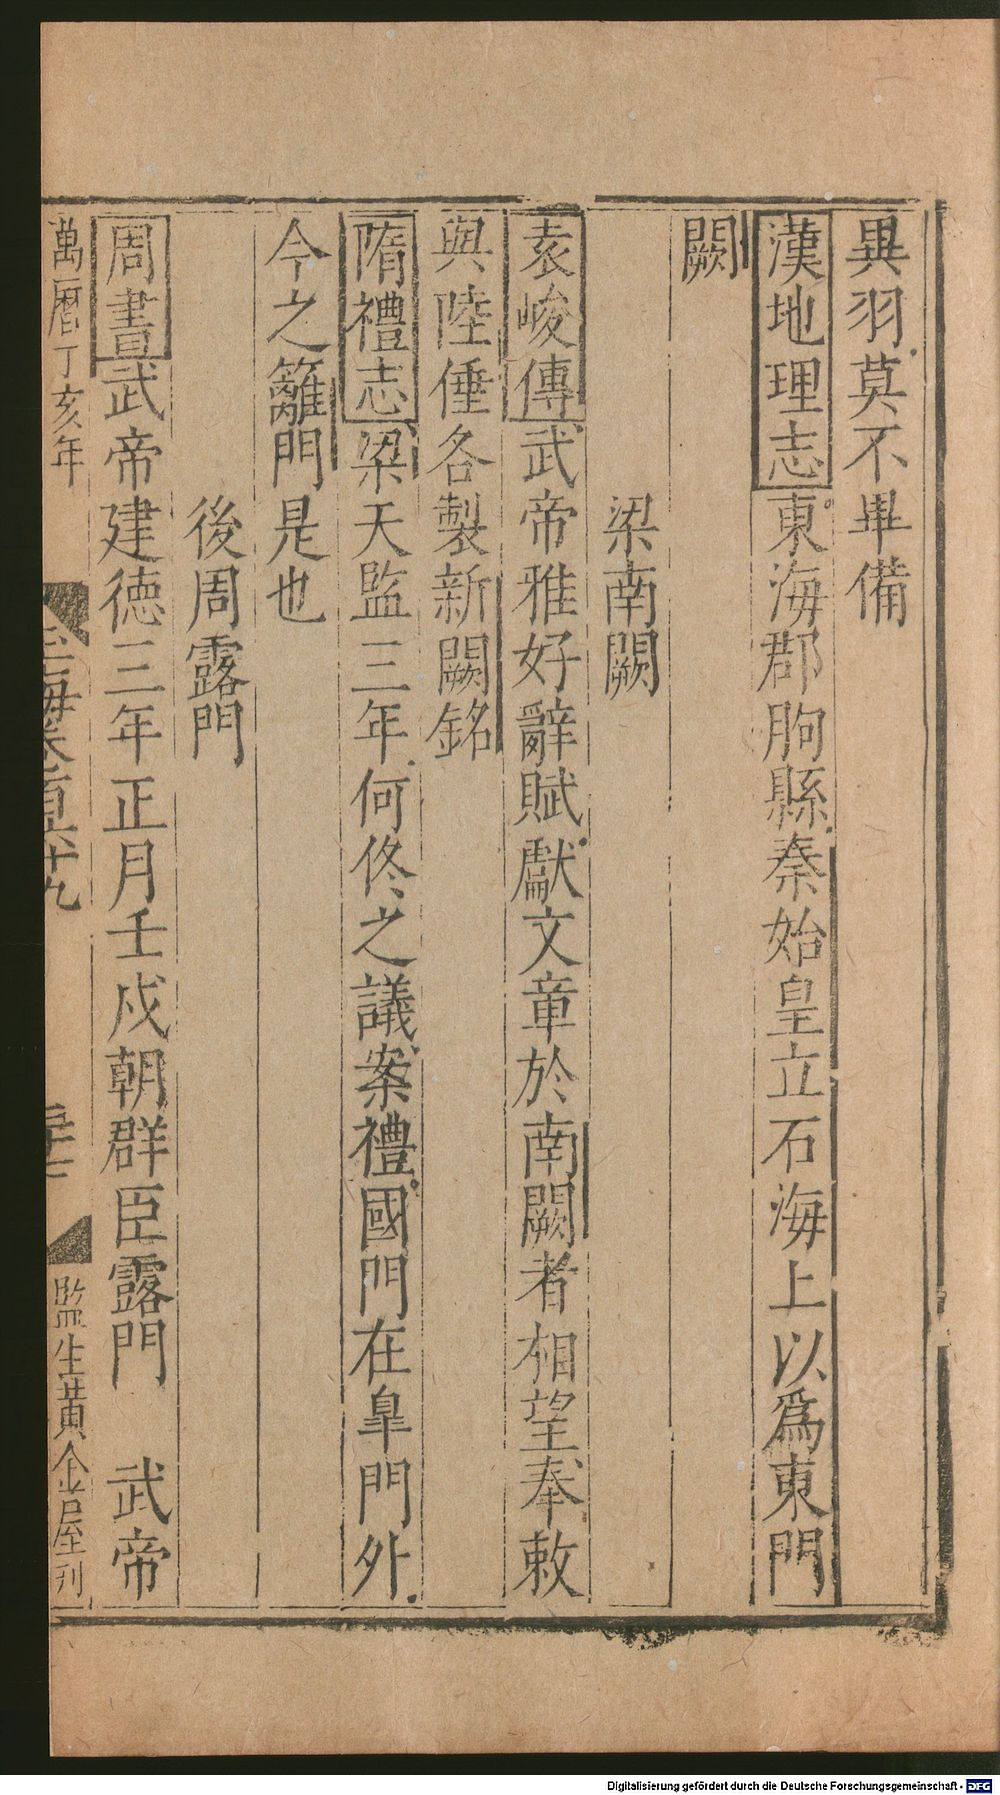 異羽莫不畢備
漢地理志東海郡朐縣秦始皇立石海上以爲東門
闕
梁南闕
袁峻傳武帝雅好辭賦獻文章於南闕者相望奉敕
與陸倕各製新闕銘
隋禮志梁天監三年何佟之議案禮國門在皐門外
今之籬門是也
後周露門
周書武帝建德三年正月壬戌朝群臣露門 武帝
萬曆丁亥年
玉海卷百六十九
監生黃金屋刊
Digitalisierung gefördert durch die Deutsche Forschungsgemeinschaft - DFG